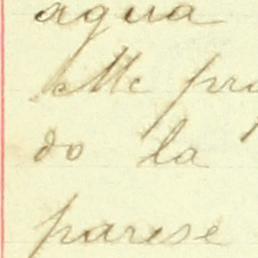 agua
do la
parese